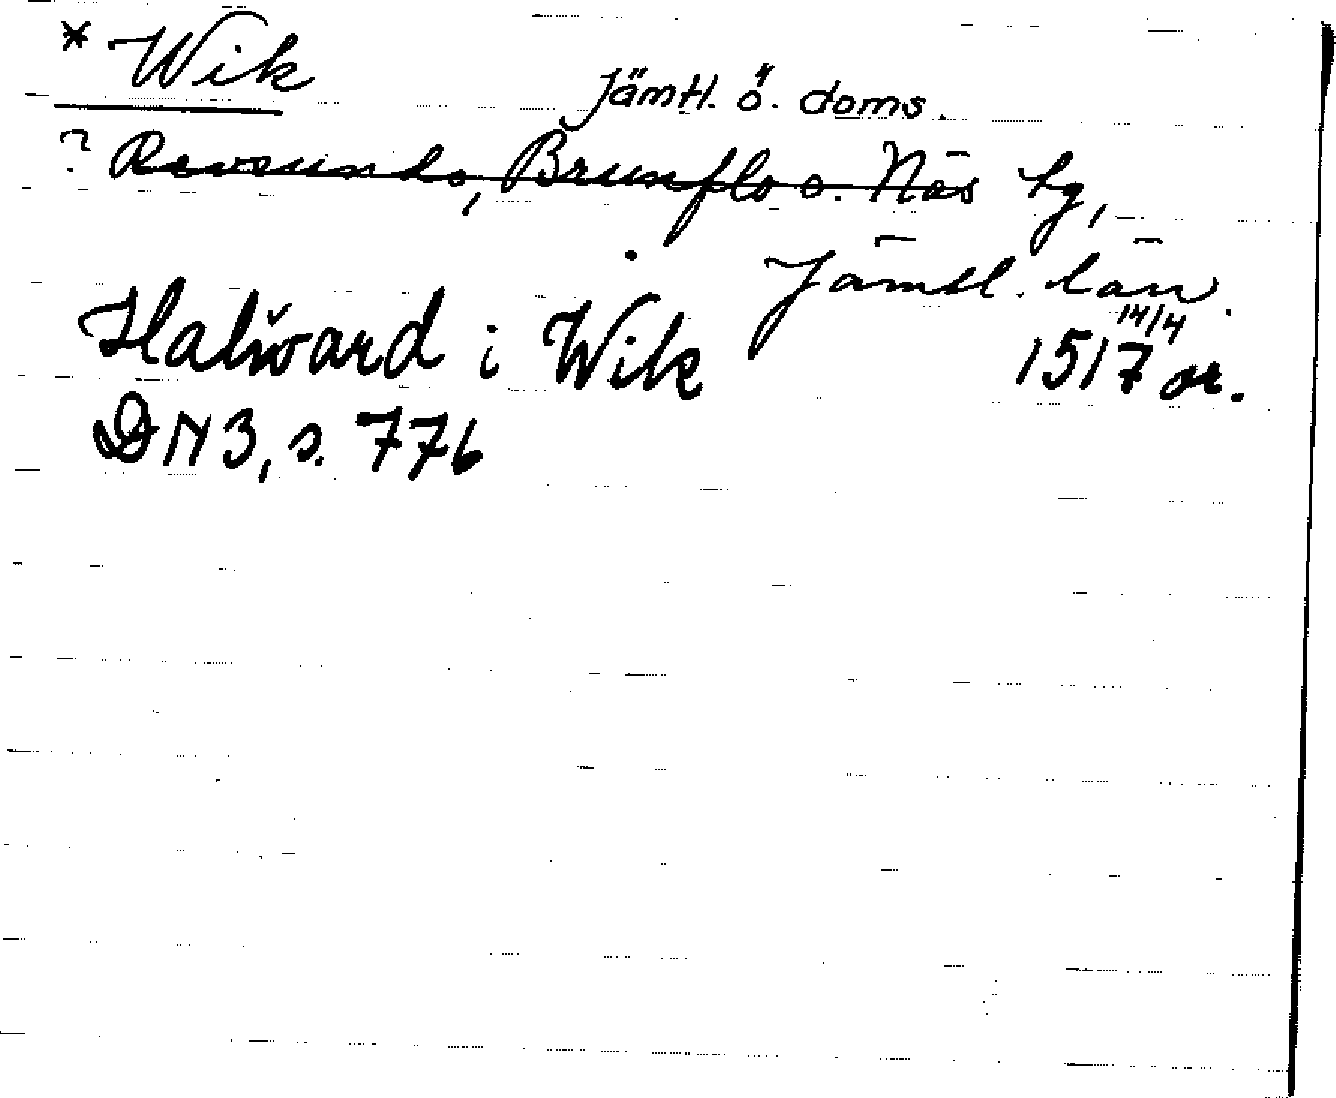 * Wik
Jämtl. ö. doms.
? Revsunds, Brunflo o. Näs tg,
Jämtl. län.
Halvard i Wik 1517 14/4 or.
DN 3, s. 776